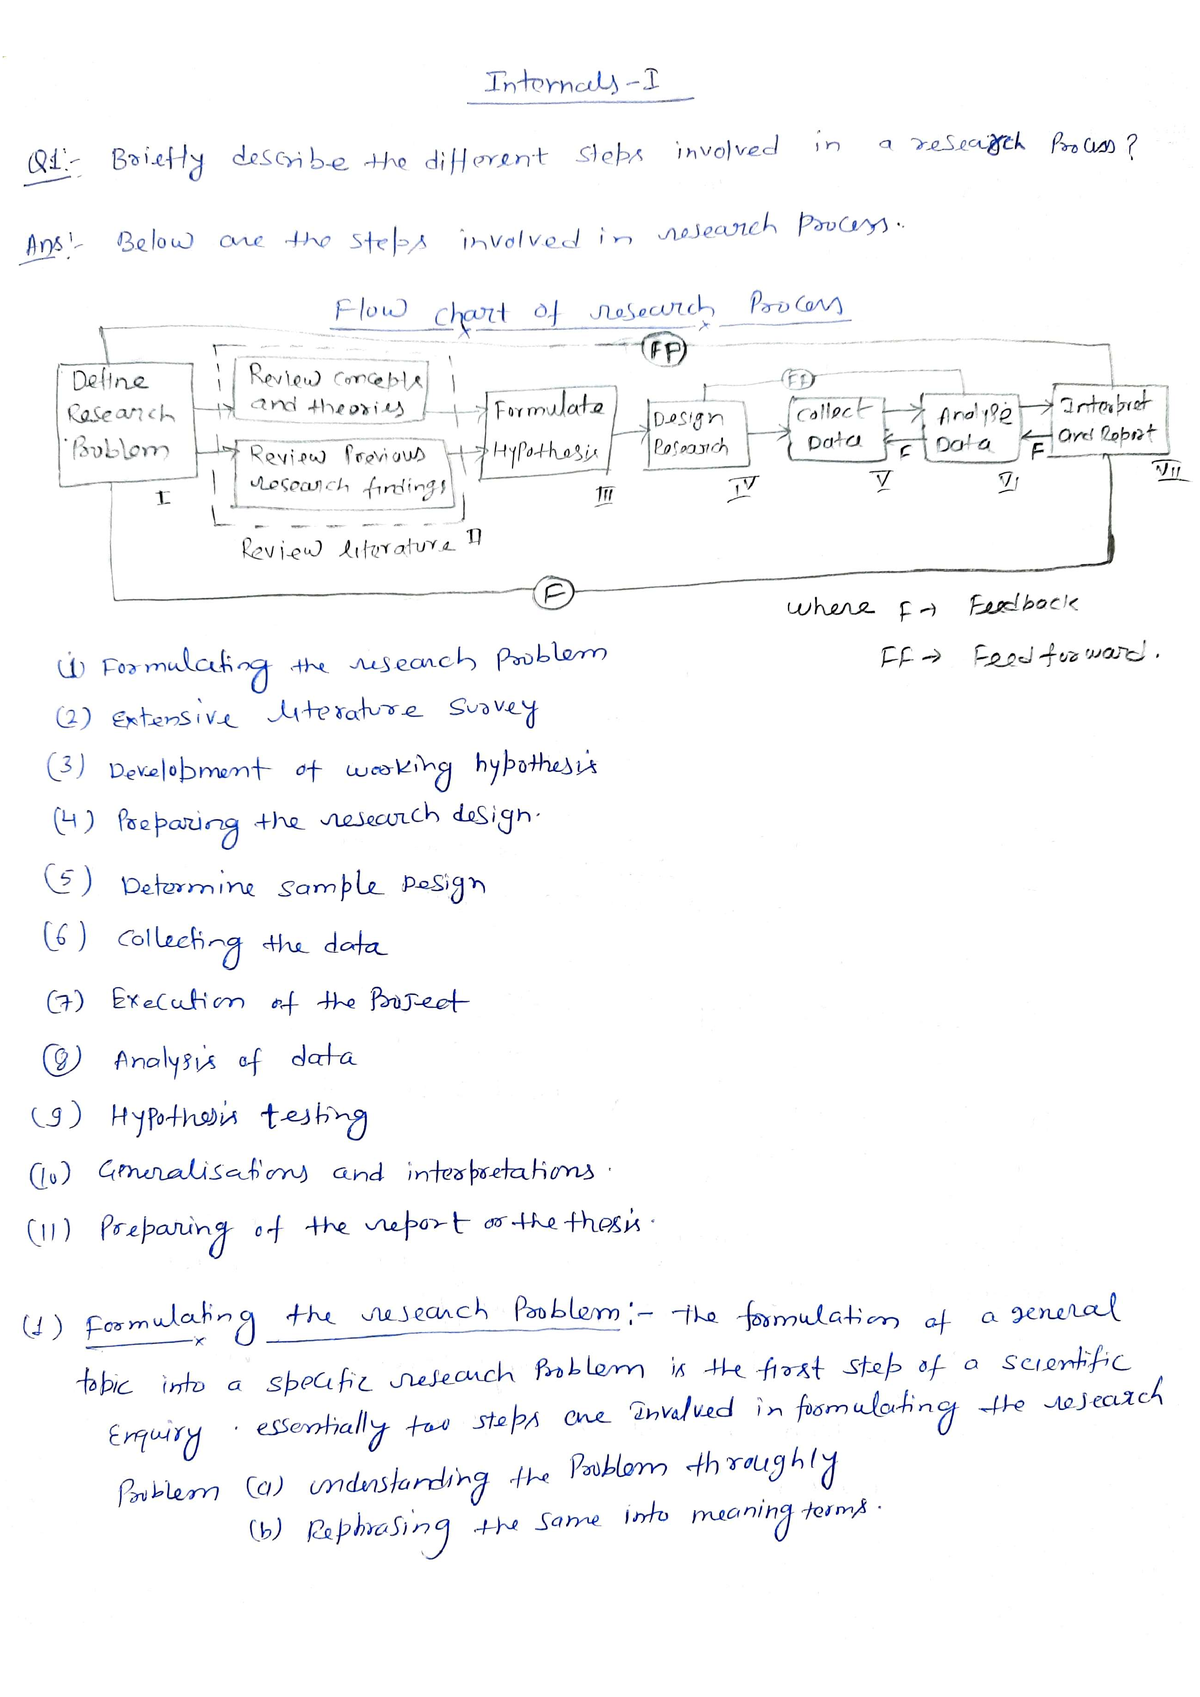 Internals-I
Q1:- Briefly describe the different steps involved in a research Process?
Ans:- Below are the steps involved in research Process..
Flow chart of research Process
FF
Define
Research
Problem
I
Review Concepts
and theories
Review Previous
research findings
Review literature II
Formulate
Hypothesis
III
Design
Research
IV
FF
Collect
Data
V
F
Analyse
Data
VI
F
Interpret
and Report
VII
F
where F → Feedback
FF → Feed forward.
(1) Formulating the research Problem
(2) Extensive literature survey
(3) Development of working hypothesis
(4) Preparing the research design.
(5) Determine sample Design
(6) Collecting the data
(7) Execution of the Project
(8) Analysis of data
(9) Hypothesis testing
(10) Generalisations and interpretations.
(11) Preparing of the report or the thesis.
(1) Formulating the research Problem:- The formulation of a general
topic into a specific research Problem is the first step of a scientific
Enquiry. essentially two steps are Involved in formulating the research
Problem (a) understanding the Problem throughly
(b) Rephrasing the same into meaning terms.